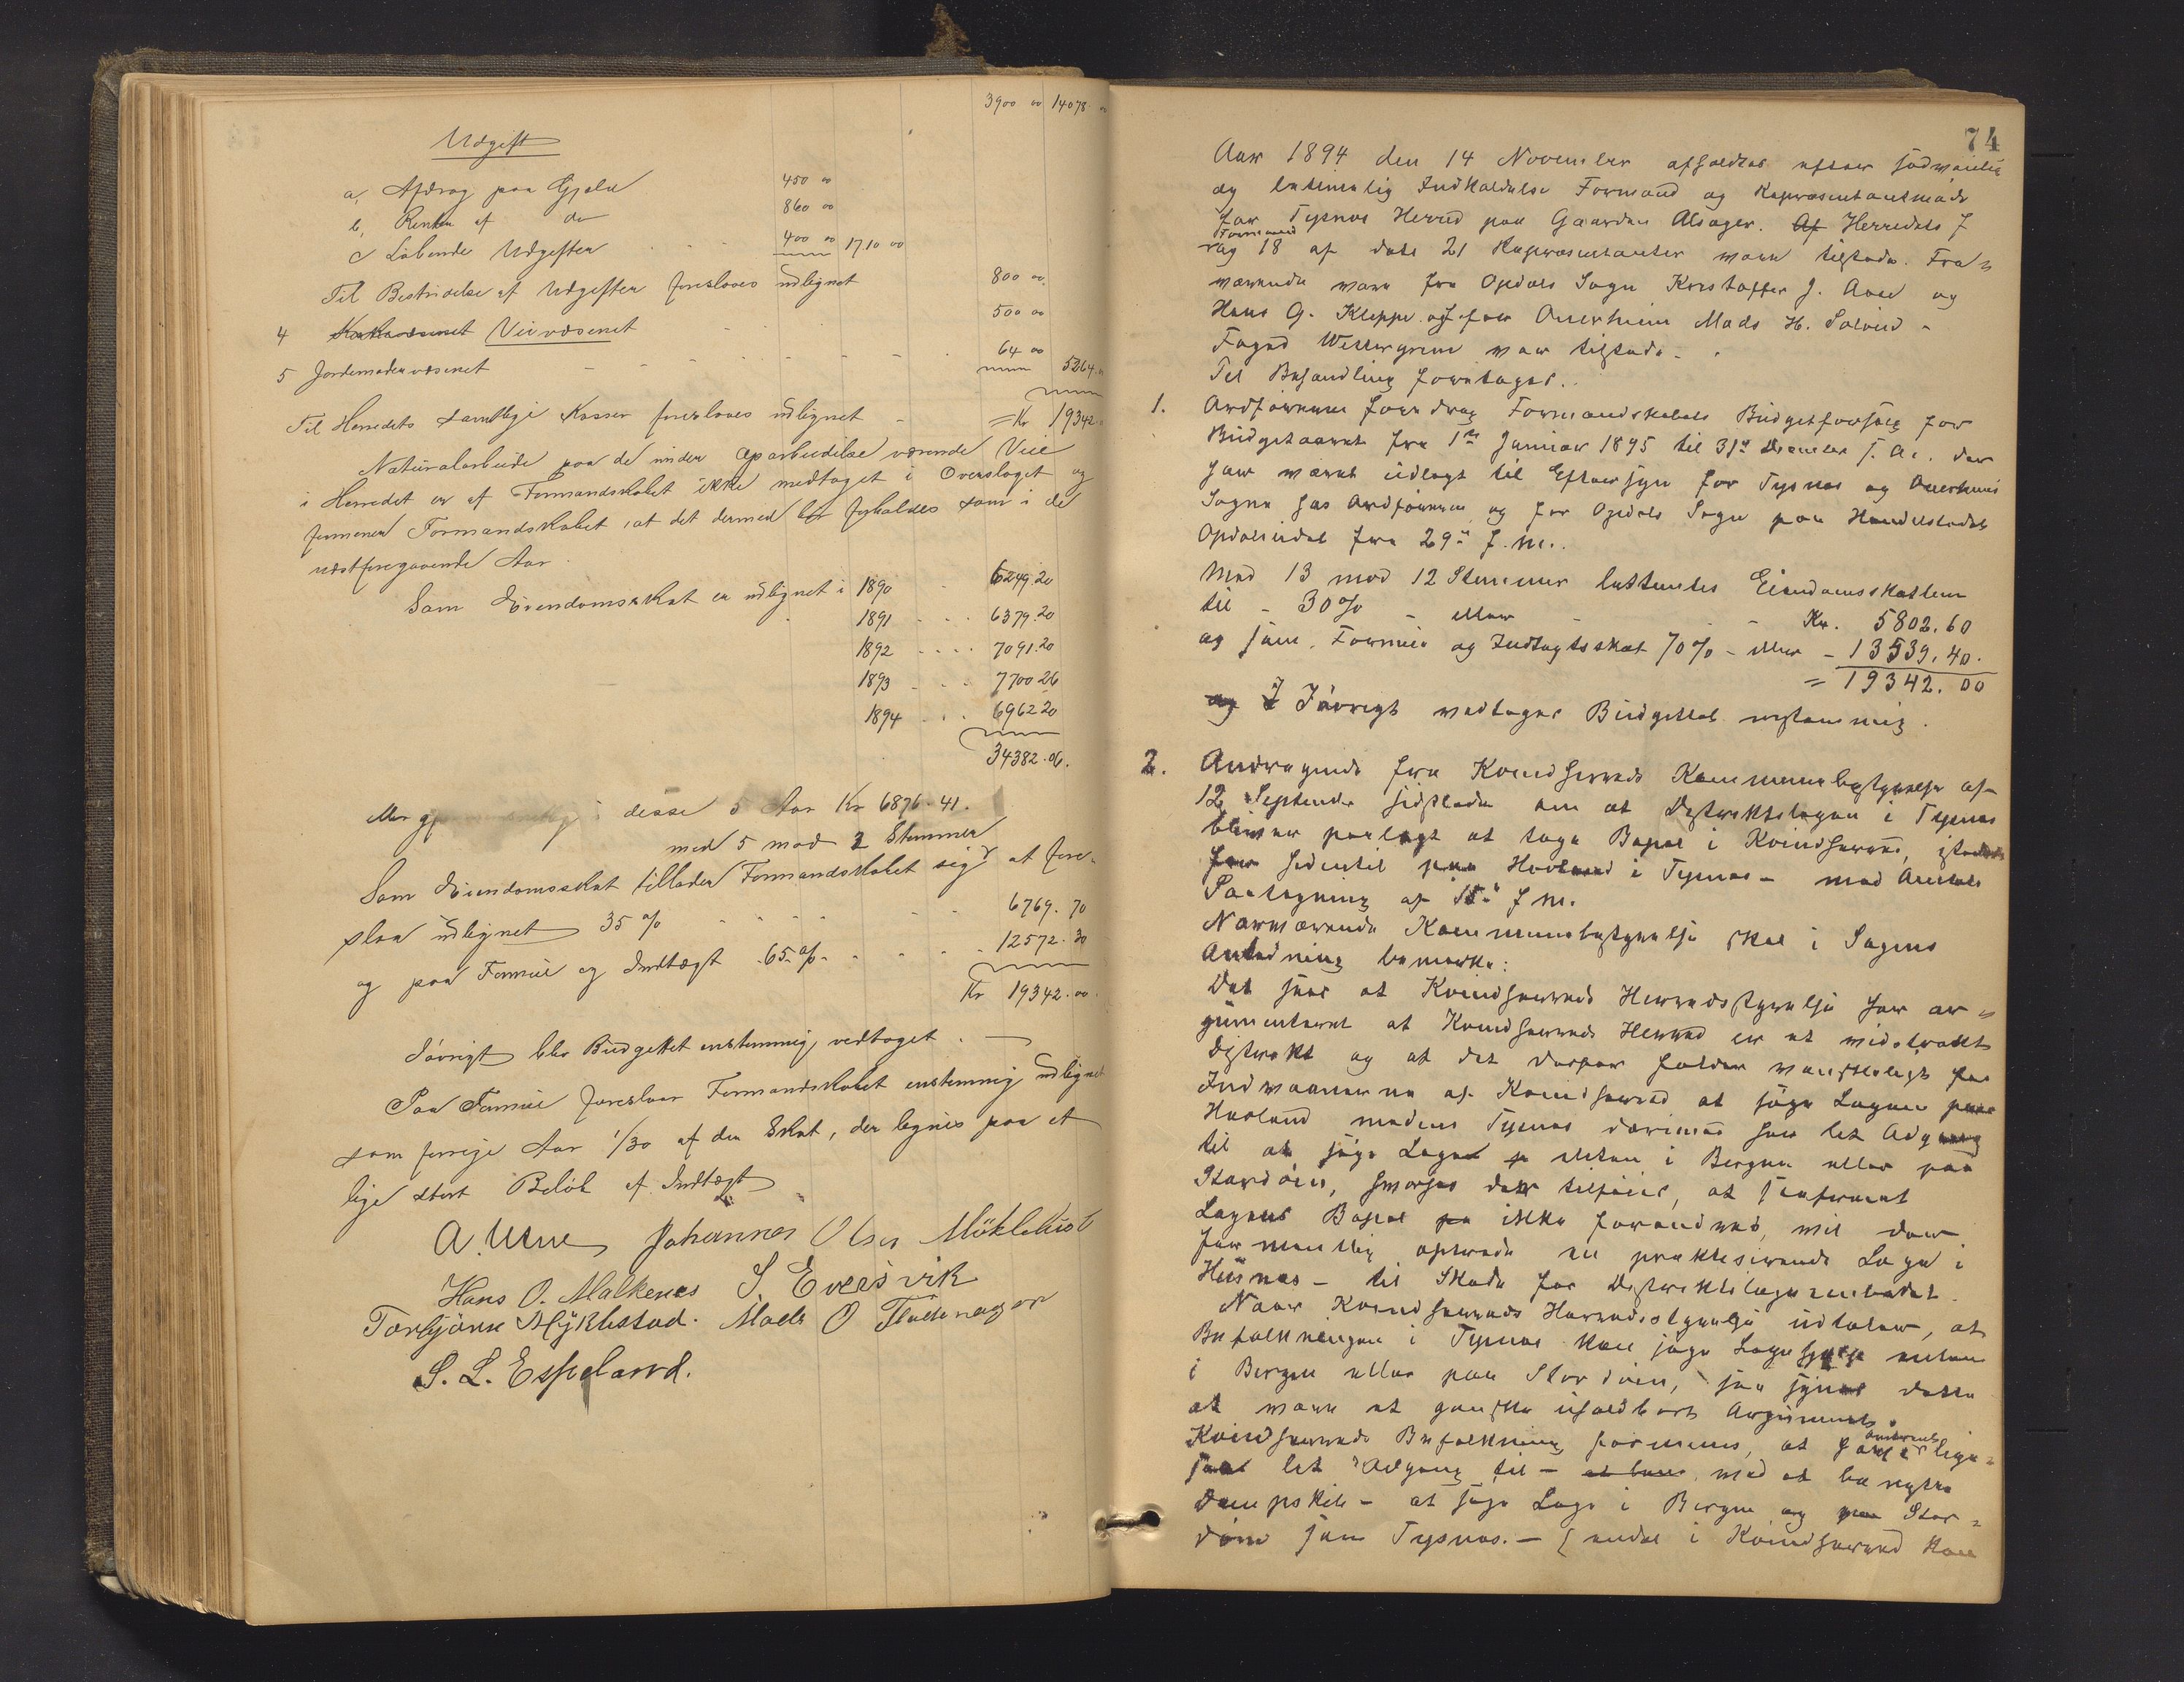 3900 00 14078
Udgift
a, Afdrag paa Gjæld 450 00
b, Renter af do 860 00
c Løbende Udgifter 400 00 1710 00
Til Bestridelse af Udgifter foreslaaes udlignet 800 00
4 Veivæsenet 500 00
5 Jordemodervæsenet 64 00 5264
Til Herredets samtlige Kasser foreslaaes udlignet = Kr 19342
Naturalarbeide paa de under Oparbeidelse værende Veie
i Herredet er af Formandskabet ikke medtaget i Overslaget og
formener Formandskabet, at det dermed forholdes som i de
næstforegaaende Aar.
Som Eiendomsskat er udlignet i 1890 6249.20
1891 6379.20
1892 7091.20
1893 7700 26
1894 6962 20
34382.06.
disse 5 Aar Kr 6876.41.
med 5 mod 2 Stemmer
Som Eiendomsskat tillader Formandskabet sig at fore-
slaa udlignet 35 % 6769.70
og paa Formue og Indtægt 65 % 12572.30
Kr 19342.00.
Iøvrigt blev Budgettet enstemmig vedtaget.
Paa Formue foreslaar Formandskabet enstemmig udlignet
som forrige Aar 1/30 af den Skat, der lignes paa et
lige stort Beløb af Indtægt
A. Uene Johannes Olsen Møklebust
Hans O. Malkenes S Eversvik
Torbjørn Myklestad. Mads O
S. L. Espeland.
74
Aar 1894 den 14 November afholdtes efter sædvanlig
og betimelig Indkaldelse Formand og Repræsentantmøde
for Tysnes Herred paa Gaarden Alsager. Af Herredets 7
Formænd
og 18 af dets 21 Repræsentanter vare tilstede. Fra-
værende vare fra Opdals Sogn Kristoffer J. Aase og
Hans G. Kleppe og for Onerheim Mads H. Solvid -
Foged Wettergreen var tilstede -
Til Behandling foretoges..
1. Ordføreren foredrog Formandskabets Budgetforslag for
Budgetaaret fra 1ste Januar 1895 til 31te December s. A., der
har været udlagt til Eftersyn for Tysnes og Onerheims
Sogne hos Ordføreren og for Opdals Sogn paa Handelsstedet
Opdalseidet fra 29de f. M.
Med 13 mod 12 Stemmer bestemtes Eiendomsskatten
til - 30 % - eller - Kr. 5802.60
og som Formue og Indtægtsskat 70 % - eller - 13539.40.
= 19342.00
I Iøvrigt vedtoges Budgettet enstemmig.
2. Andragende fra Kvindherreds Kommunebestyrelse af
12 September sidstleden om at Distriktslægen i Tysnes
bliver paalagt at tage Bopæl i Kvindherred, istedet
for hidentil paa Hovland i Tysnes - med Amtets
Paategning af 15de f. M.
Nærværende Kommunebestyrelse skal i Sagens
Anledning bemærke:
Det sees at Kvindherreds Herredsstyrelse har ar-
gumenteret at Kvindherreds Herred er et vidstrakt
Distrikt og at det derfor falder vanskeligt for
Indvaanerne af Kvindherred at søge Lægen paa
Hovland medens Tysnes derimod har let Adgang
til at søge Læge enten i Bergen eller paa
Stordøen, hvorhos der tilføies, at saafremt
Lægens Bopæl ikke forandres, vil der
formentlig optræde en praktiserende Læge i
Husnes - til Skade for Distriktslægeembedet.
Naar Kvindherreds Herredsstyrelse udtaler, at
Befolkningen i Tysnes kan søge Lægehjælp enten
i Bergen eller paa Stordøen, saa synes dette
at være et ganske uholdbart Argument.
Kvindherreds Befolkning formenes, at have lige-
saa let Adgang til - med at benytte
Dampskib - at søge Læge i Bergen og paa Stor-
døen som Tysnes. - (endel i Kvindherred kan